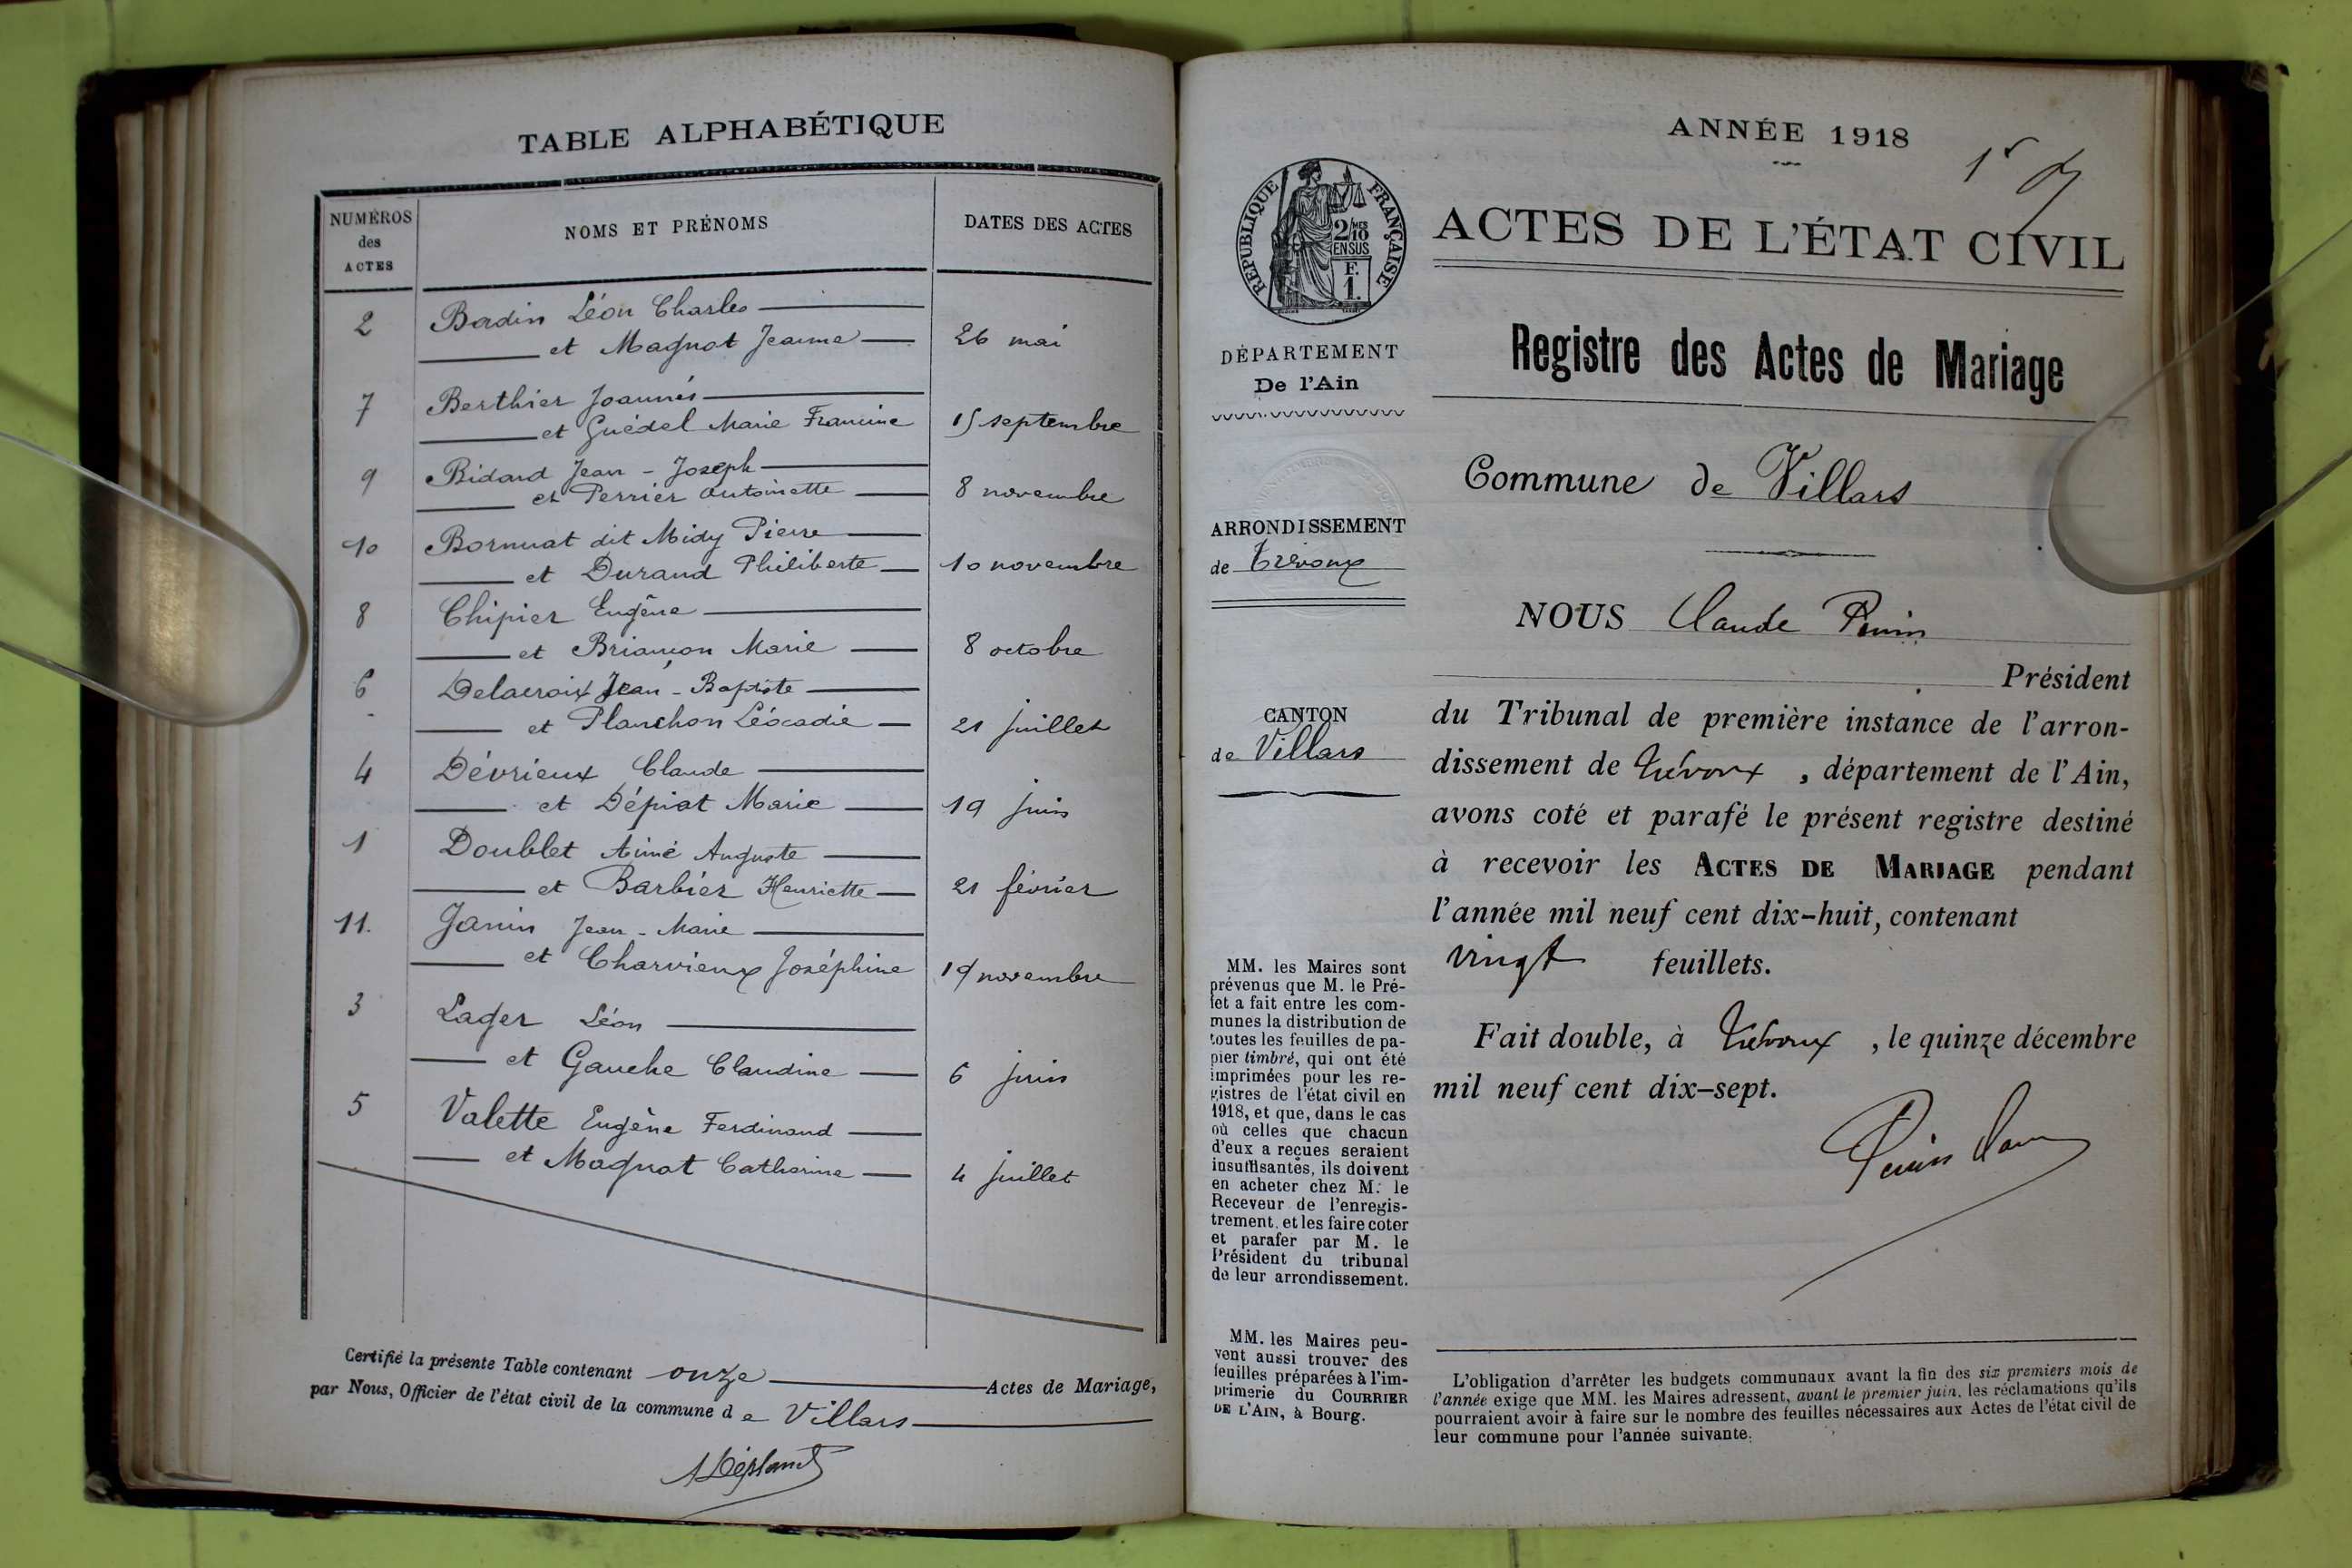 TABLE ALPHABÉTIQUE
NUMÉROS
des
ACTES
NOMS ET PRÉNOMS
DATES DES ACTES
2 Badin Léon Charles
et Magnat Jeanne 26 mai
7 Berthier Joannès
et Guédel Marie Francine 15 septembre
9 Bidard Jean - Joseph
et Perrier Antoinette 8 novembre
10 Bornuat dit Midy Pierre
et Durand Philiberte 10 novembre
8 Chipier Eugène
et Briançon Marie 8 octobre
6 Delacroix Jean - Baptiste
et Planchon Léocadie 21 juillet
4 Dévrieux Claude
et Dépiat Marie 19 juin
1 Doublet Aimé Auguste
et Barbier Henriette 21 février
11. Janin Jean - Marie
et Charvieux Joséphine 19 novembre
3 Lager Léon
et Gauche Claudine 6 juin
5 Valette Eugène Ferdinand
et Magnat Catherine 4 juillet
Certifié la présente Table contenant onze Actes de Mariage,
par Nous, Officier de l'état civil de la commune de Villars
ANNÉE 1918
1r
RÉPUBLIQUE FRANÇAISE
2/10 MES
EN SUS
F.
1.
ACTES DE L'ÉTAT CIVIL
DÉPARTEMENT
De l'Ain
Registre des Actes de Mariage
Commune de Villars
ARRONDISSEMENT
de Trévoux
NOUS Claude
Président
CANTON
de Villars
du Tribunal de première instance de l'arron-
dissement de Trévoux, département de l'Ain,
avons coté et parafé le présent registre destiné
à recevoir les ACTES DE MARIAGE pendant
l'année mil neuf cent dix-huit, contenant
vingt feuillets.
Fait double, à Trévoux, le quinze décembre
mil neuf cent dix-sept.
MM. les Maires sont
prévenus que M. le Pré-
fet a fait entre les com-
munes la distribution de
toutes les feuilles de pa-
pier timbré, qui ont été
imprimées pour les re-
gistres de l'état civil en
1918, et que, dans le cas
où celles que chacun
d'eux a reçues seraient
insuffisantes, ils doivent
en acheter chez M. le
Receveur de l'enregis-
trement, et les faire coter
et parafer par M. le
Président du tribunal
de leur arrondissement.
MM. les Maires peu-
vent aussi trouver des
feuilles préparées à l'im-
primerie du COURRIER
DE L'AIN, à Bourg.
L'obligation d'arrêter les budgets communaux avant la fin des six premiers mois de
l'année exige que MM. les Maires adressent, avant le premier juin, les réclamations qu'ils
pourraient avoir à faire sur le nombre des feuilles nécessaires aux Actes de l'état civil de
leur commune pour l'année suivante.